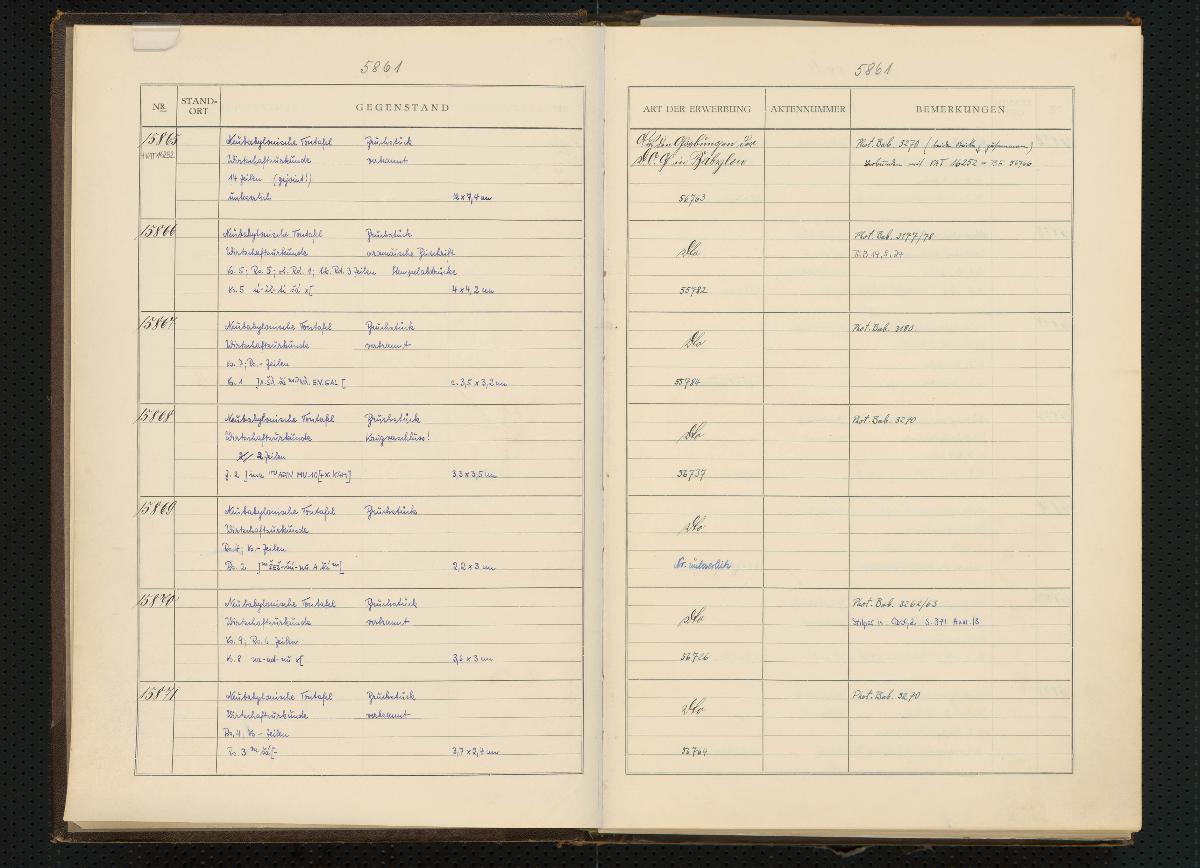 5861
NR. STAND-ORT GEGENSTAND
15865 Neubabylonische Tontafel Bruchstück
+VAT 16252 Wirtschaftsurkunde verbrannt
14 Zeilen (gejoint!)
unleserlich 12 x 7,4 cm
15866 Neubabylonische Tontafel Bruchstück
Wirtschaftsurkunde aramäische Beischrift
Vs. 5; Rs. 5; o. Rd. 1; lk. Rd. 3 Zeilen Stempelabdrücke
Vs. 5 4 x 4,2 cm
15867 Neubabylonische Tontafel Bruchstück
Wirtschaftsurkunde verbrannt
Vs. 7; Rs. - Zeilen
Vs. 1 EN.GAL [ c. 3,5 x 3,2 cm
15868 Neubabylonische Tontafel Bruchstück
Wirtschaftsurkunde Kriegsschluss!
2 Zeilen
Z. 2 ] ina ITU APIN MU.10[+x.KAM] 3,3 x 3,5 cm
15869 Neubabylonische Tontafel Bruchstück
Wirtschaftsurkunde
Rs. 4; Vs. - Zeilen
Rs. 2 2,2 x 3 cm
15870 Neubabylonische Tontafel Bruchstück
Wirtschaftsurkunde verbrannt
Vs. 9; Rs. 6 Zeilen
Vs. 8 na-ad-nu x[ 3,6 x 3 cm
15871 Neubabylonische Tontafel Bruchstück
Wirtschaftsurkunde verbrannt
Rs. 4; Vs. - Zeilen
Rs. 3 3,7 x 2,7 cm
5861
ART DER ERWERBUNG AKTENNUMMER BEMERKUNGEN
Aus den Grabungen der Phot. Bab. 3270 (beide Stücke zusammen)
D.O.G. in Babylon Verbunden mit VAT 16252 = BE 56766
56763
Dto Phot. Bab. 3177/78
S. 27
55782
Dto Phot. Bab. 3180
55784
Dto Phot. Bab. 3270
56737
Dto
Nr. unleserlich
Dto Phot. Bab. 3262/63
S. 371 Anm. 18
56726
Dto Phot. Bab. 3270
56764